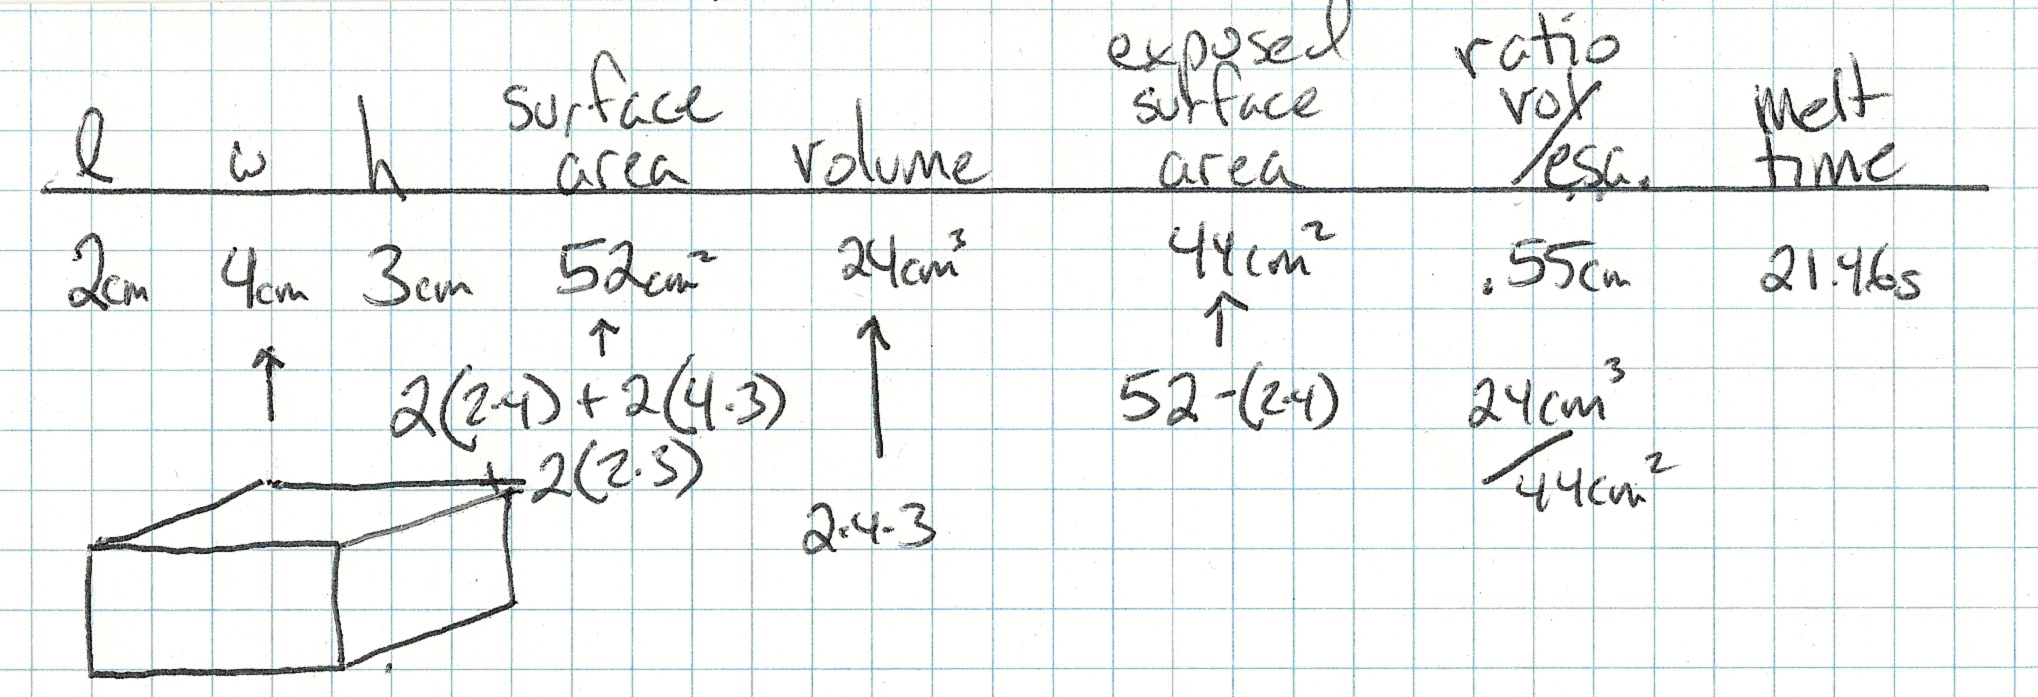 l w h surface area volume exposed surface area ratio vol/esa. melt time
2cm 4cm 3cm 52cm² 24cm³ 44cm² .55cm 21.46s
↑ ↑ ↑ ↑
2(2·4) + 2(4·3) 52-(2·4) 24cm³
+ 2(2·3) /44cm²
2·4·3